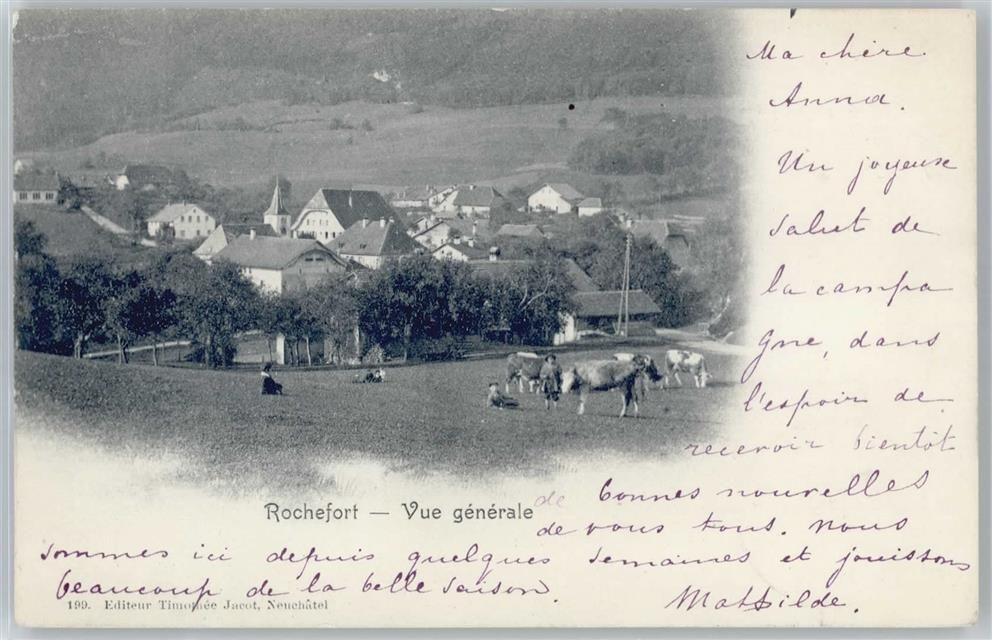 Ma chère
Anna.
Un joyeuse
salut de
la campa
gne, dans
l'espoir de
recevoir bientôt
de bonnes nouvelles
de vous tous. Nous
sommes ici depuis quelques semaines et jouissons
beaucoup de la belle saison.
Mathilde.
Rochefort — Vue générale
199. Editeur Timothée Jacot, Neuchâtel